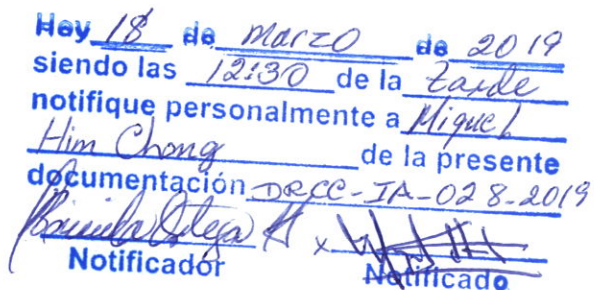 Hoy 18 de marzo de 2019
siendo las 12:30 de la tarde
notifique personalmente a Miguel
Him Chong de la presente
documentación DRCC-IA-028-2019
Notificador Notificado